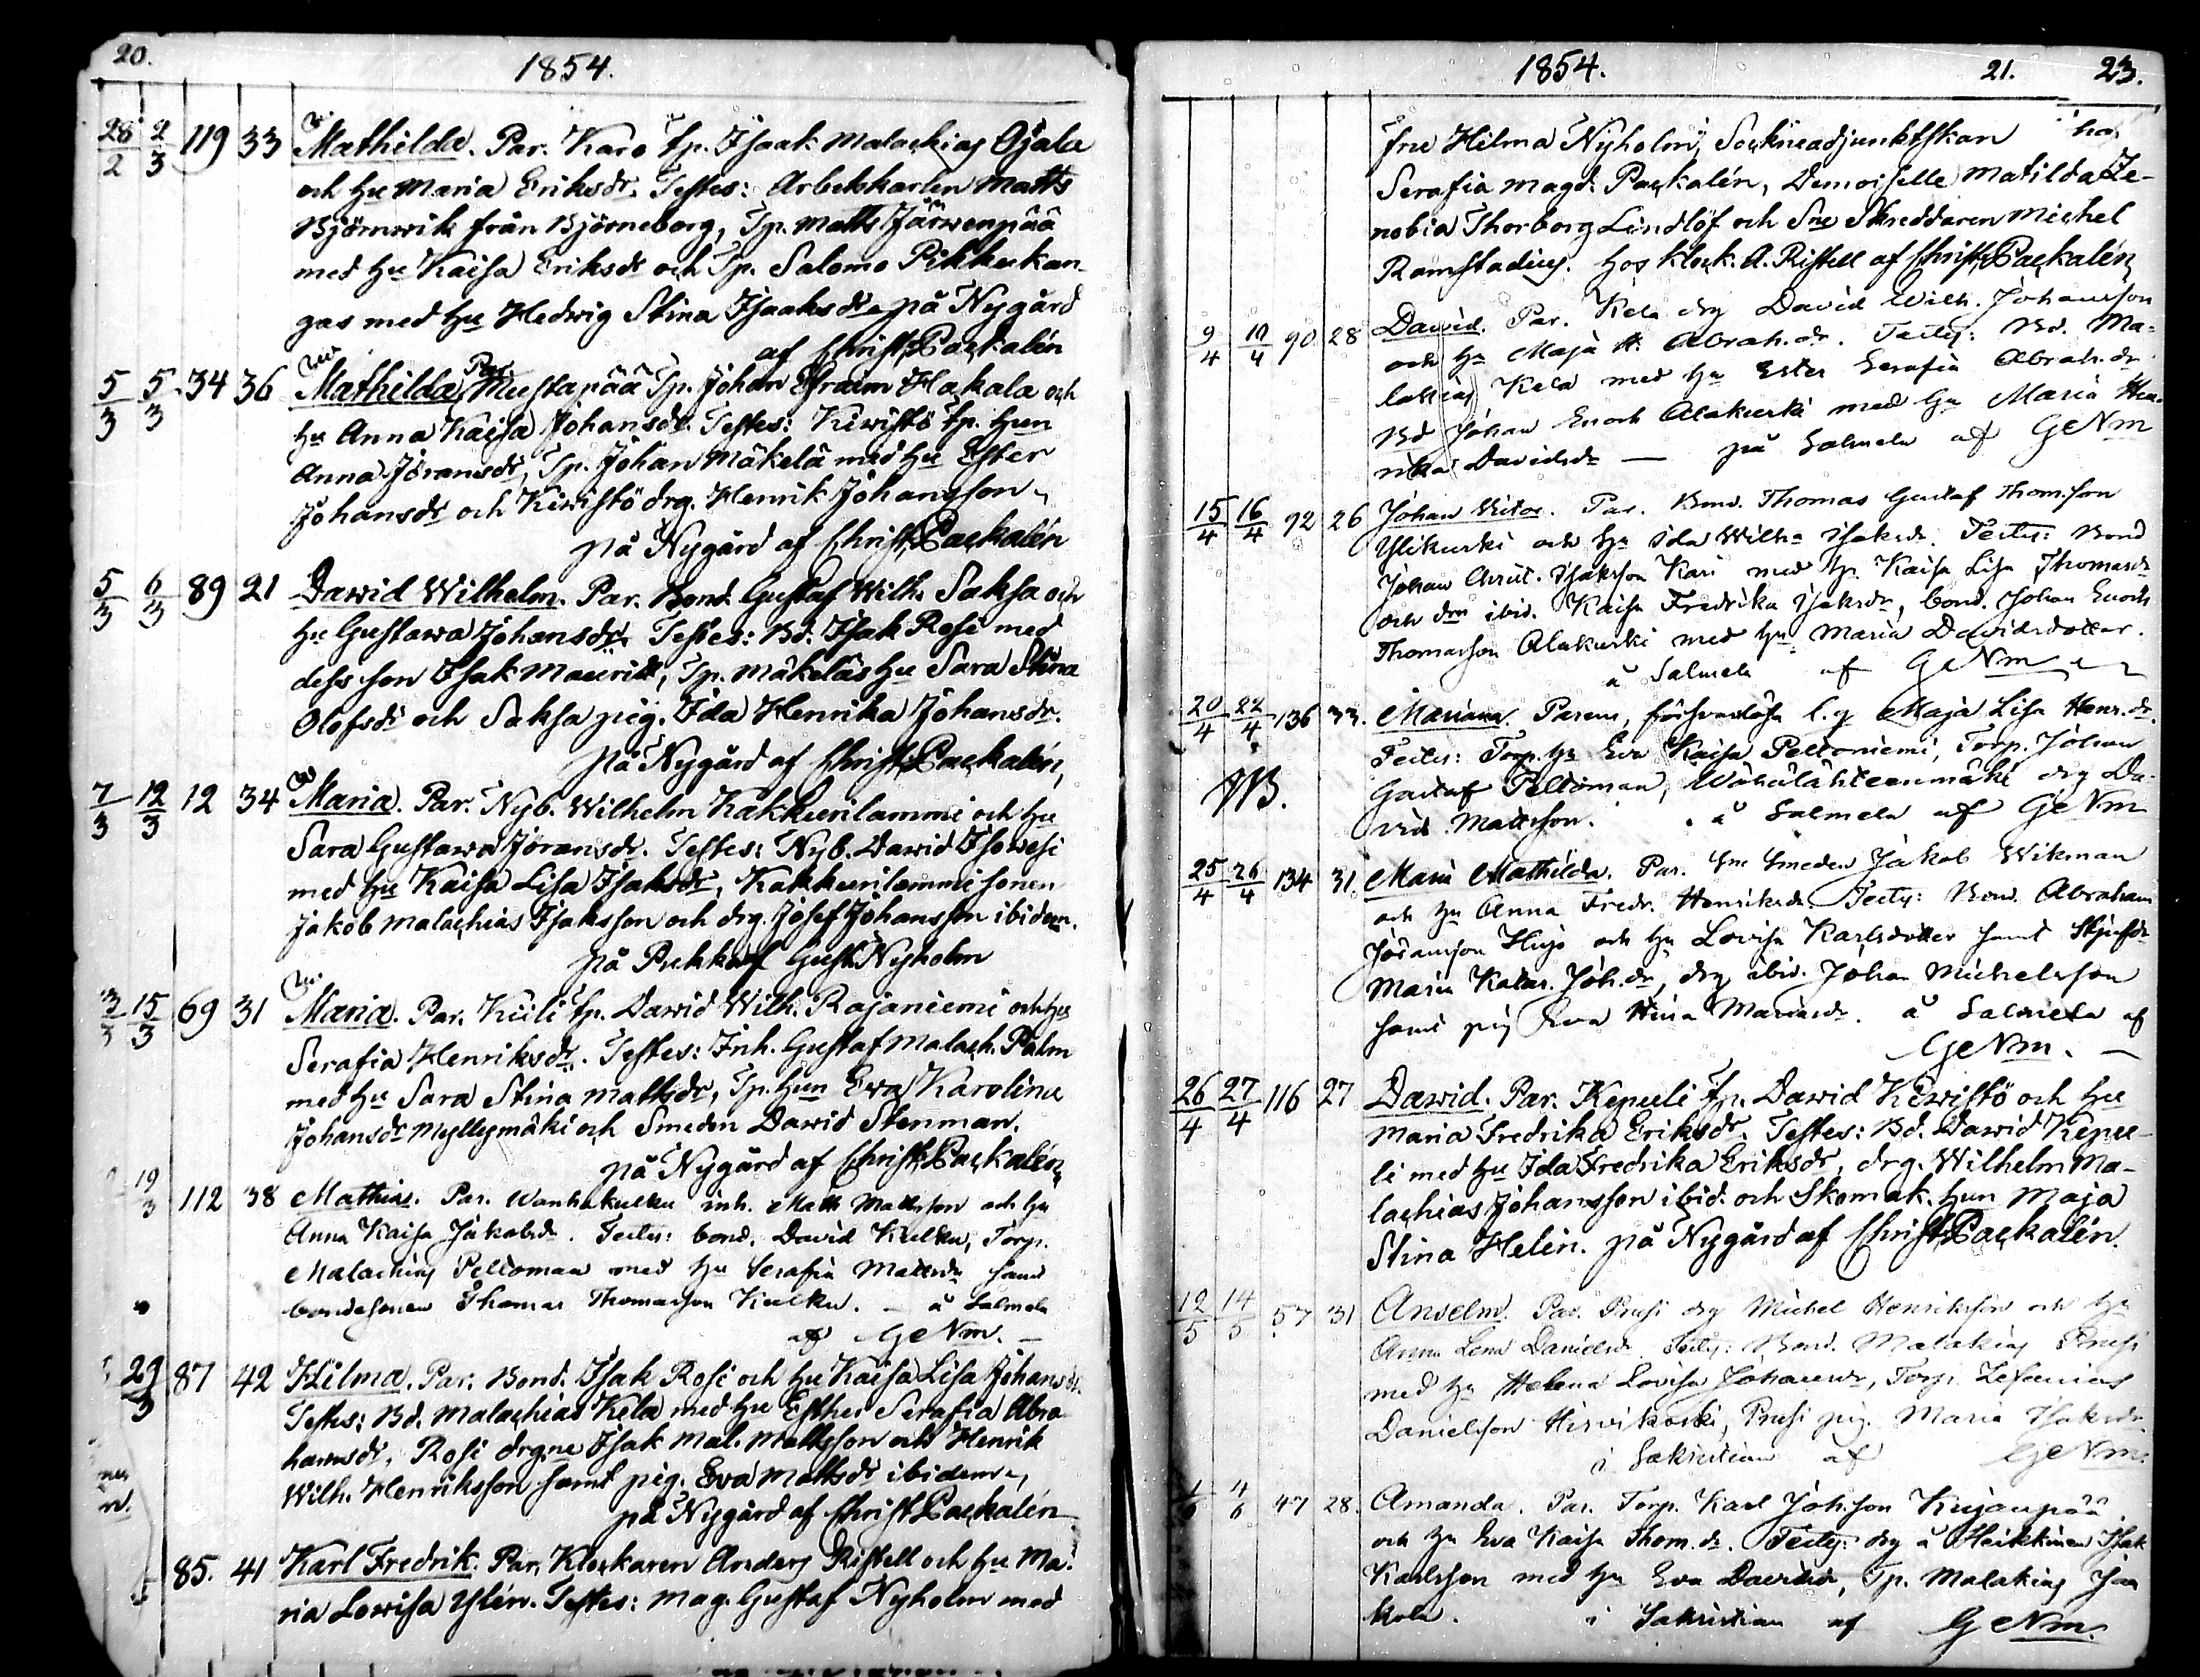 20.
1854.
28/2 2/3 119 33 Mathilda. Par. Karo tp. Isaak Malachias Ojala
och hu Maria Eriksdr. Testes: Arbetskarlen Matts
Björnwik från Björneborg, Tp. Matts Järwenpää
med hu Kaisa Eriksdr och Tp. Salomo Pikkukan-
gas med hu Hedwig Stina Isaaksdr på Nygård
af Christ. Packalén
5/3 5/3 34 36 Mathilda. Par. Mustapää Tp. Johan Efraim Hakala och
hu Anna Kaisa Johansdr. Testes: Kiwistö tp. hun
Anna Jöransdr, Tp. Johan Mäkelä med hu Ester
Johansdr och Kiwistö drg. Henrik Johansson
på Nygård af Christ. Packalén
5/3 6/3 89 21 Dawid Wilhelm. Par. Bond. Gustaf Wilh. Saksa och
hu Gustawa Johansdr. Testes: Bd. Isak Rosi med
dess son Isak Maurits, Tp. Mäkeläs hu Sara Stina
Olofsdr och Saksa pig. Ida Henrika Johansdr.
på Nygård af Christ. Packalén,
7/3 12/3 12 34 Maria. Par. Nyb. Wilhelm Kakkurilammi och hu
Sara Gustawa Jöransdr. Testes: Nyb. Dawid Isowesi
med hu Kaisa Lisa Isaksdr, Kakkurilammi sonen
Jakob Malachias Isaksson och drg. Josef Johansson ibidem.
på Pukka af Gust. Nyholm
15/3 69 31 Maria. Par. Kuli tp. Dawid Wilh. Rajaniemi och hu
Serafia Henriksdr. Testes: Inh. Gustaf Malach. Palm
med hu Sara Stina Mattsdr, Tp. hun Ewa Karolina
Johansdr Myllymäki och Smeden Dawid Stenman.
på Nygård af Christ. Packalén
19/3 112 38 Mathias. Par. Wanhakulku inh. Matts Mattsson och hu
Anna Kaisa Jakobsdr. Testes: bond. David Kulku, Torp.
Malachias Peltomaa med hu Serafia Mattsdr samt
bondesonen Thomas Thomasson Kulku. — å Salmela
af GeNm. —
29/3 87 42 Hilma. Par. Bond. Isak Rosi och hu Kaisa Lisa Johansdr.
Testes: Bd. Malachias Kela med hu Esther Serafia Abra-
hamsdr, Rosi drgne Isak Mal. Mattsson och Henrik
Wilh. Henriksson samt pig. Ewa Mattsdr ibidem,
på Nygård af Christ. Packalén
85. 41 Karl Fredrik. Par. Klockaren Anders Ristell och hu Ma-
ria Lowisa Ylén. Testes: Mag. Gustaf Nyholm med
1854.
21. 23.
fru Hilma Nyholm, Sockneadjunktskan
Serafia Magd. Packalén, Demoiselle Matilda Ze-
nobia Thorborg Lindlöf och Sne Skreddaren Michel
Ramstadius. hos klock. A. Ristell af Christ. Packalén
9/4 10/4 90 28 David. Par. Kela drg David Wilh. Johansson
och hu Maja St. Abrah.dr. Testes: Bd. Ma-
lakias Kela med hu Ester Serafia Abrah.dr
Bd Johan Enoch Alakurki med hu Maria Hen-
rika Davidsdr — på Salmela af GeNm
15/4 16/4 92 26 Johan Viktor. Par. Bond. Thomas Gustaf Thomsson
Ylikurki och hu Ida Wilh:a Isaksdr. Testes: Bond
Johan Isaksson Kari med hu Kaisa Lisa Thomasdr
och ibid. Kaisa Fredrika Isaksdr, bond. Johan Enoch
Thomasson Alakurki med hu Maria Davidsdotter.
å Salmela af GeNm
20/4 22/4 136 33. Mariana. Parens, försvarslösa l.q Maja Lisa Henr.dr.
Testes: Torp. hu Eva Kaisa Peltoniemi, Torp. Johan
NB. Gustaf Peltomaa, Wähälähteenmäki drg Da-
vid Mattsson. å Salmela af GeNm
25/4 26/4 134 31. Maria Mathilda. Par. Sne Smeden Jakob Wikman
och hu Anna Fredr. Henriksdr. Testes: Bond. Abraham
Jöransson Hujo och hu Lovisa Karlsdotter samt
Maria Katar. Joh.dr, drg ibid. Johan Michelsson
samt pig Eva Stina Mariasdr. å Salmela af
GeNm. —
26/4 27/4 116 27 Dawid. Par. Kepuli tp. Dawid Kiwistö och hu
Maria Fredrika Eriksdr. Testes: Bd. Dawid Kepu-
li med hu Ida Fredrika Eriksdr, drg. Wilhelm Ma-
lachias Johansson ibid. och Skomak. hun Maja
Stina Helin. på Nygård af Christ. Packalén.
12/5 14/5 57 31 Anselm. Par. Prusi drg Michel Henriksson och hu
Anna Lena Danielsdr. Testes: Bond. Malakias Prusi
med hu Helena Lovisa Johansdr, Torp. Zefanias
Danielsson Hirvikoski, Prusi pig. Maria Isaksdr.
i Sakristian af GeNm.
1/6 4/6 47 28. Amanda. Par. Torp. Karl Johsson Kujanpää
och hu Eva Kaisa Thom.dr. Testes: drg å Heikkinen Isak
Karlsson med hu Eva Davidsdr, Tp. Malakias
kola. i Sakristian af GeNm.